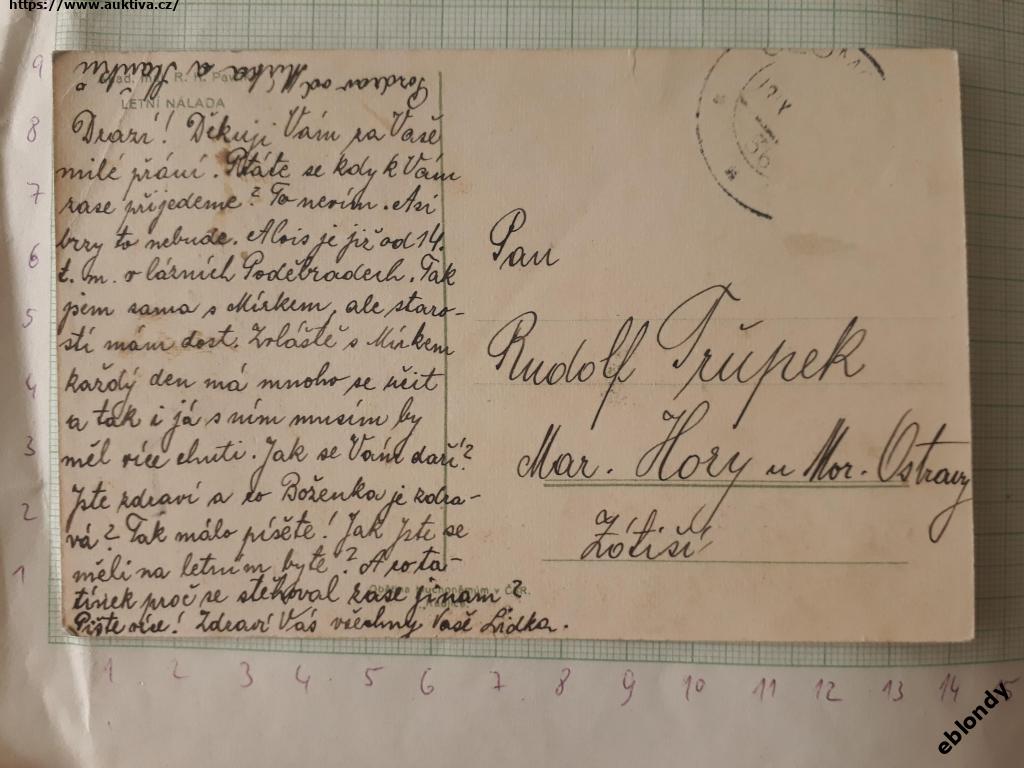 https://www.auktiva.cz/
Pozdrav od Mirka a
R. R.
LETNÍ NÁLADA
Drazí! Děkuji Vám za Vaše
milé přání. Ptáte se kdy k Vám
zase přijedeme? To nevím. Asi
brzy to nebude. Alois je již od 14.
t. m. v lázních Poděbradech. Tak
jsem sama s Mirkem, ale staro-
stí mám dost. Zvláště s Mirkem
každý den má mnoho se učit
a tak i já s ním musím by
měl více chuti. Jak se Vám daří?
Jste zdraví a co Boženka je zdra-
vá? Tak málo píšete! Jak jste se
měli na letním bytě? A co ta-
tínek proč se stěhoval zase jinam?
Pište více! Zdraví Vás všechny Vaše Lidka.
Pan
Rudolf Třúpek
Mar. Hory u Mor. Ostravy
Zátiší
36
9
8
7
6
5
4
3
2
1
1 2 3 4 5 6 7 8 9 10 11 12 13 14 15
eblondy